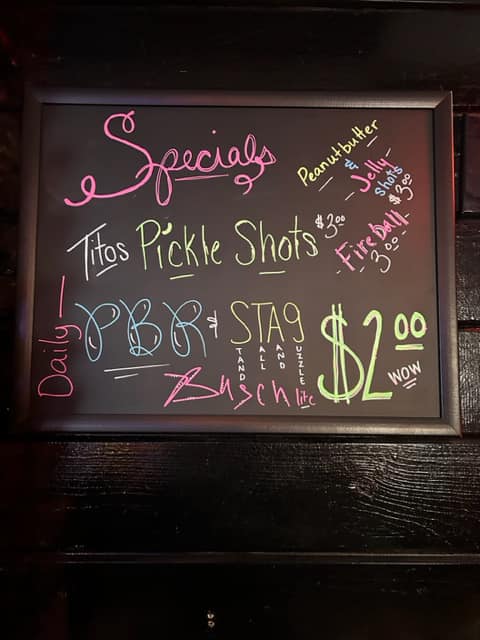 Specials
Peanutbutter
& Jelly
Shots
$3.00
Titos Pickle Shots $3.00
FireBall
3.00
Daily
PBR & STAG $2.00
TAND ALL AND UZZLE
Busch lite
WOW